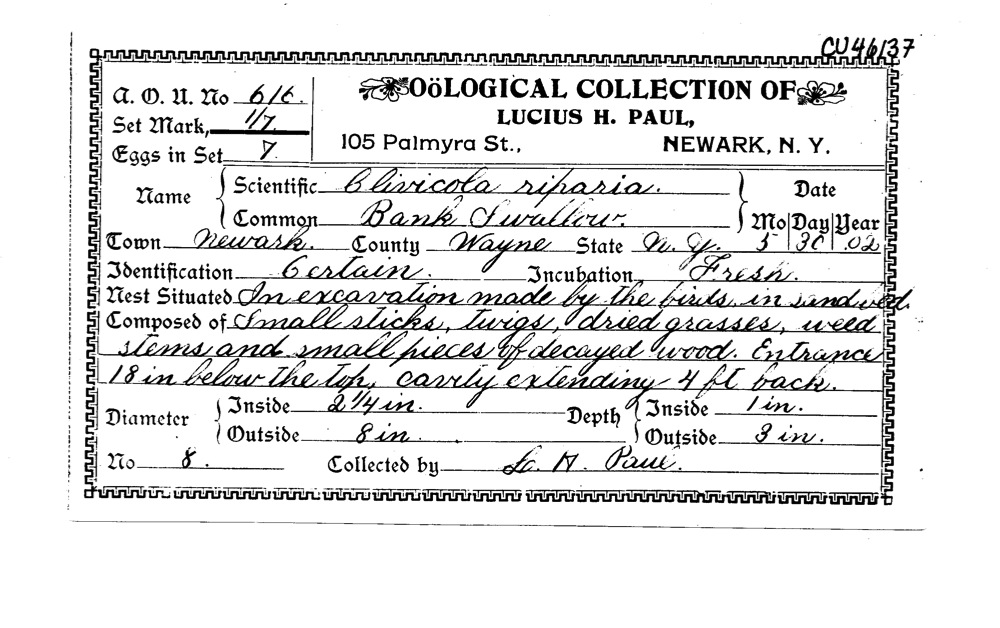 CU46137
A. O. U. No 616.
OöLOGICAL COLLECTION OF
Set Mark, 1/7
LUCIUS H. PAUL,
Eggs in Set 7
105 Palmyra St., NEWARK, N. Y.
Name Scientific Clivicola riparia. Date
Common Bank Swallow. Mo Day Year
Town Newark. County Wayne State N. Y. 5 30 02
Identification Certain. Incubation Fresh.
Nest Situated In excavation made by the birds, in sand
Composed of Small sticks, twigs, dried grasses, weed
stems and small pieces of decayed wood. Entrance
18 in below the top, cavity extending 4 ft back.
Diameter Inside 2 1/4 in. Depth Inside 1 in.
Outside 8 in. Outside 3 in.
No 8. Collected by L. H. Paul.